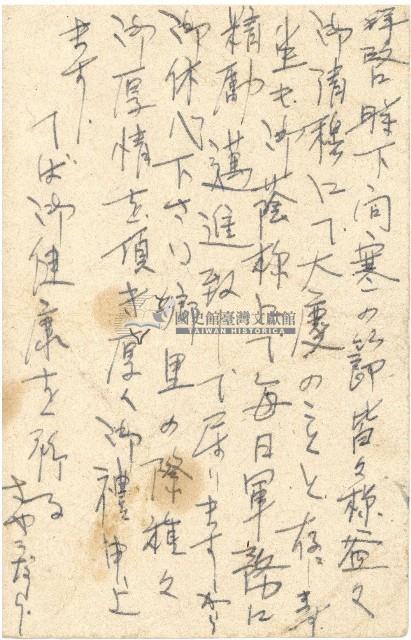 拝啓 時下向寒の節皆々様益々
御清穆にて大慶のことと存じます
生も御蔭様にて毎日軍務に
精励邁進致して居りますから
御休心下さい 帰里の際種々
御厚情を頂き厚く御礼申上
ます
では御健康を祈る
さやうなら
國史館臺灣文獻館
TAIWAN HISTORICA